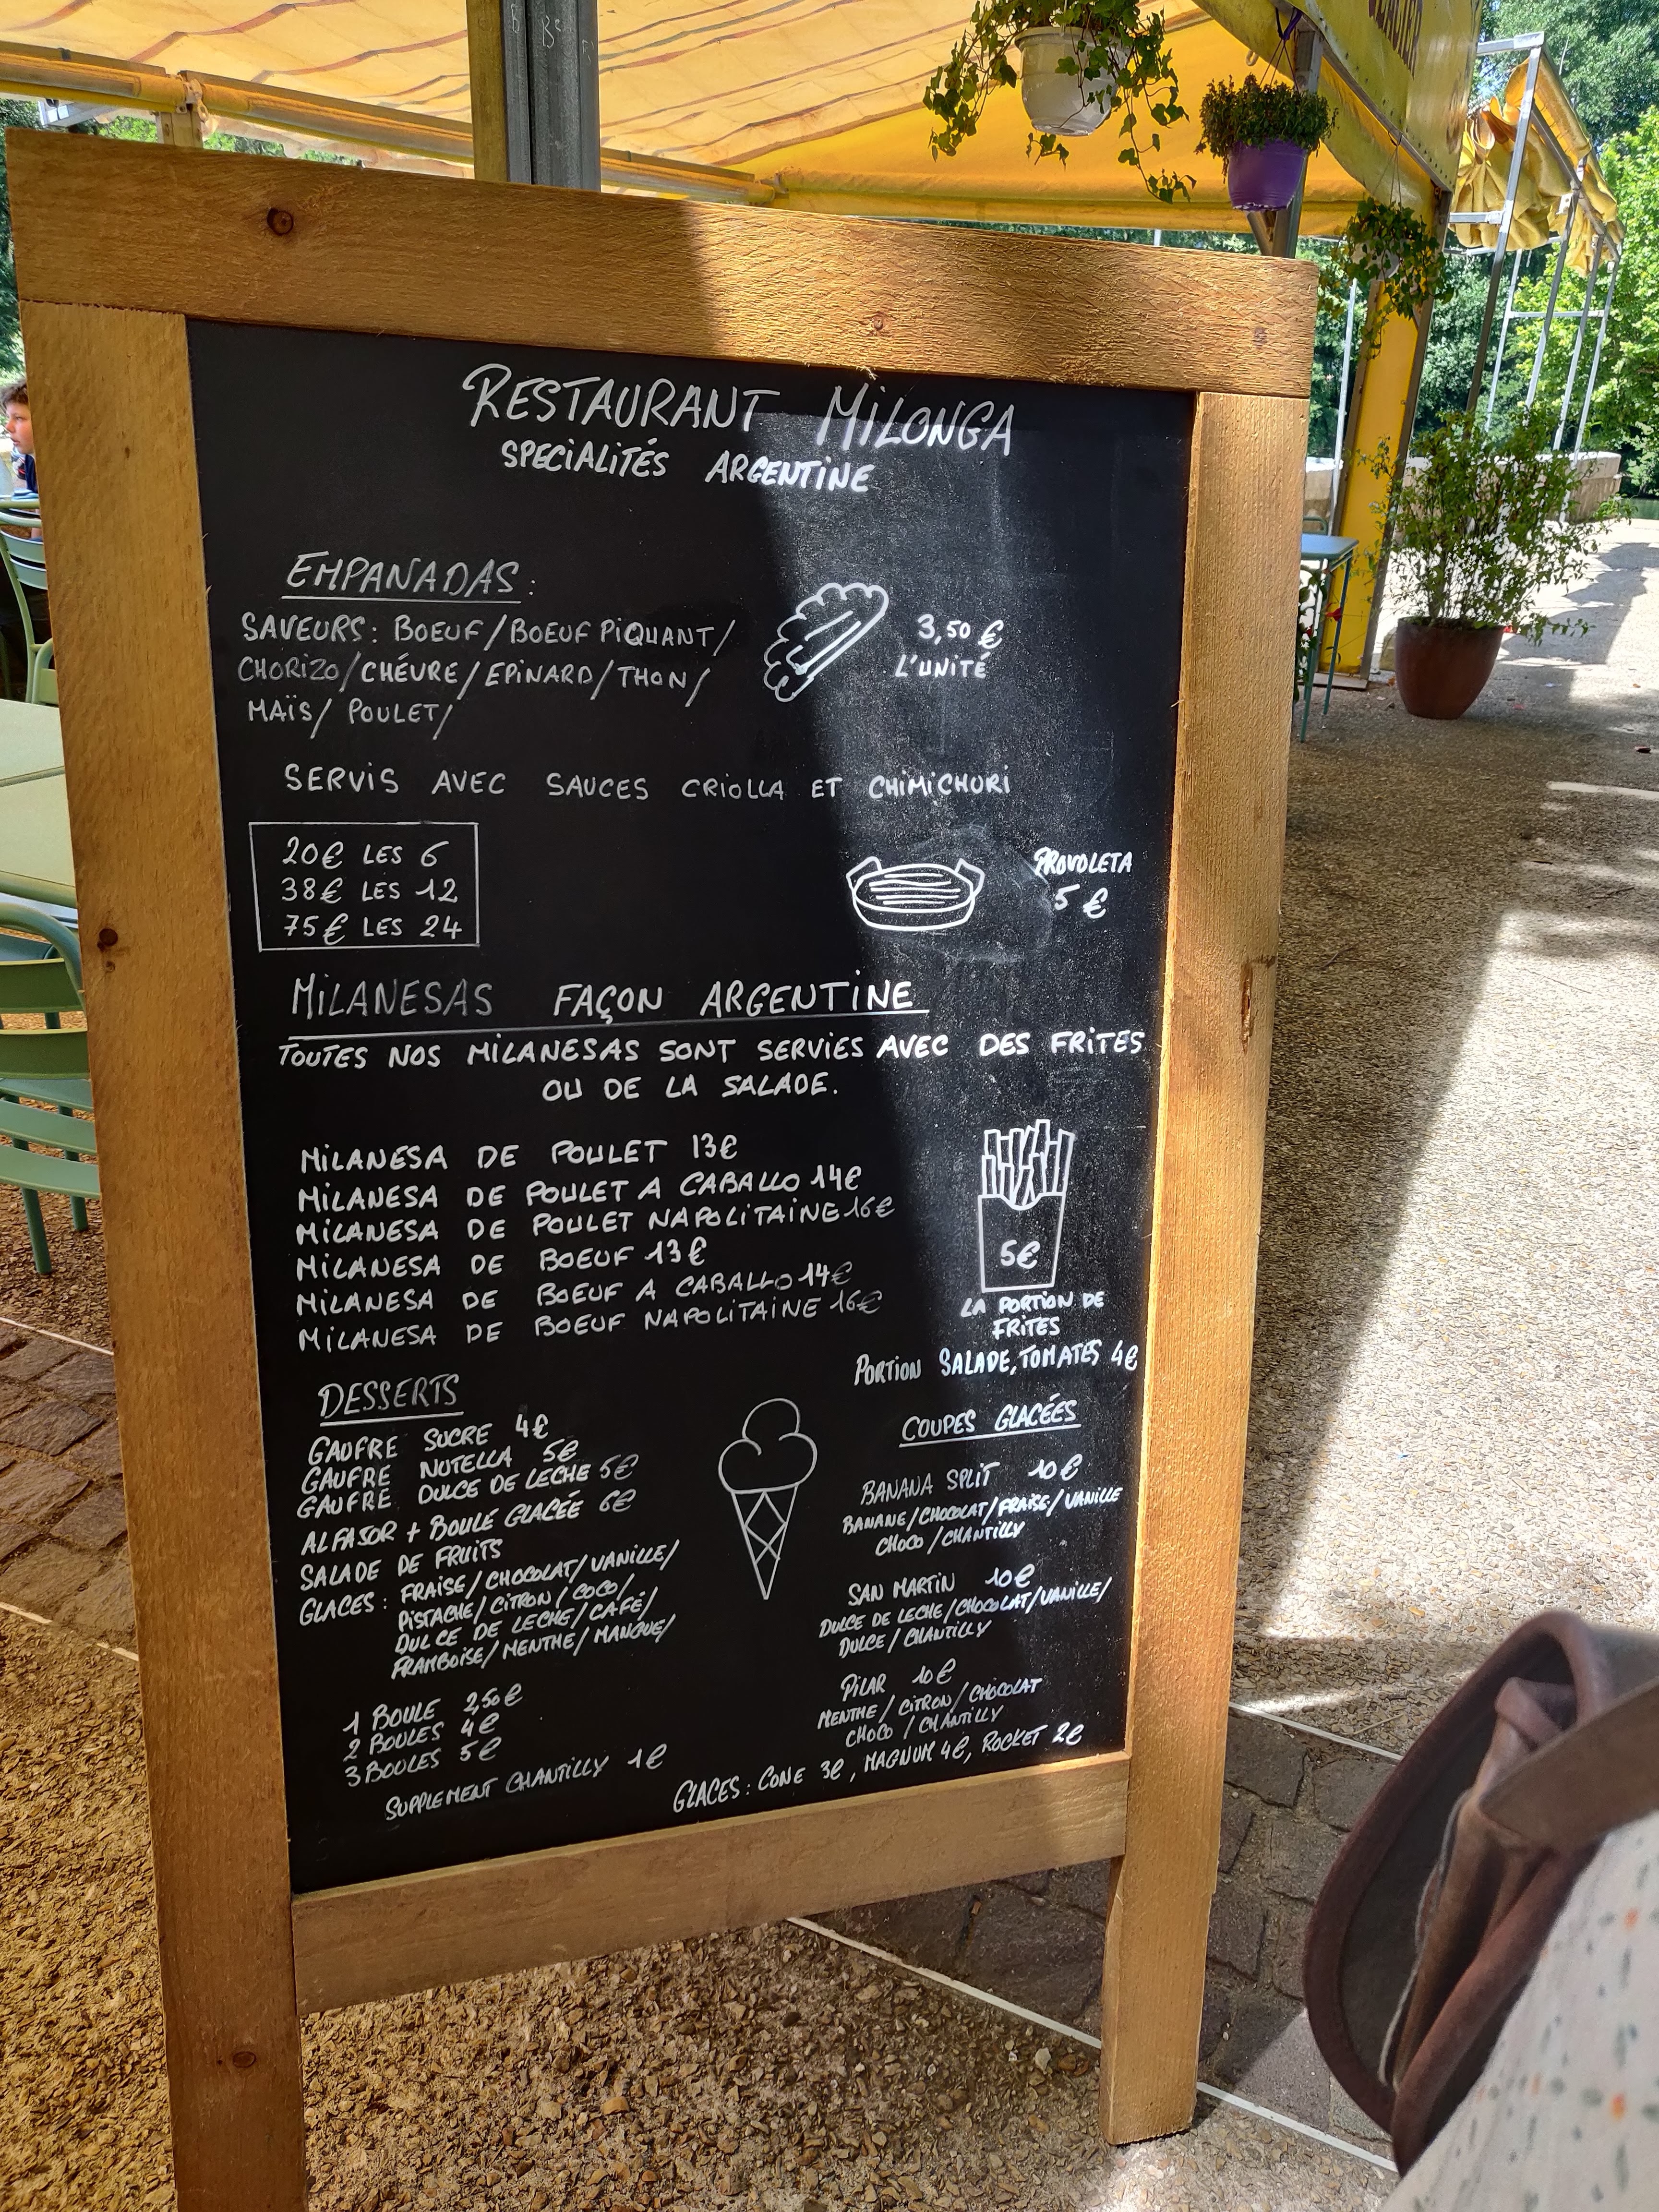 RESTAURANT MILONGA
SPECIALITÉS ARGENTINE
EMPANADAS :
SAVEURS : BOEUF / BOEUF PIQUANT /
CHORIZO / CHÉVRE / EPINARD / THON /
MAÏS / POULET /
3,50 €
L'UNITÉ
SERVIS AVEC SAUCES CRIOLLA ET CHIMICHURI
20€ LES 6
38€ LES 12
75€ LES 24
PROVOLETA
5 €
MILANESAS FAÇON ARGENTINE
TOUTES NOS MILANESAS SONT SERVIES AVEC DES FRITES
OU DE LA SALADE.
MILANESA DE POULET 13€
MILANESA DE POULET A CABALLO 14€
MILANESA DE POULET NAPOLITAINE 16€
MILANESA DE BOEUF 13€
MILANESA DE BOEUF A CABALLO 14€
MILANESA DE BOEUF NAPOLITAINE 16€
5€
LA PORTION DE
FRITES
PORTION SALADE, TOMATES 4€
DESSERTS
GAUFRE SUCRE 4€
GAUFRE NUTELLA 5€
GAUFRE DULCE DE LECHE 5€
ALFASOR + BOULE GLACÉE 6€
SALADE DE FRUITS
GLACES : FRAISE / CHOCOLAT / VANILLE /
PISTACHE / CITRON / COCO /
DULCE DE LECHE / CAFÉ /
FRAMBOISE / MENTHE / MANGUE /
1 BOULE 2,50€
2 BOULES 4€
3 BOULES 5€
SUPPLEMENT CHANTILLY 1€
COUPES GLACÉES
BANANA SPLIT 10€
BANANE / CHOCOLAT / FRAISE / VANILLE
CHOCO / CHANTILLY
SAN MARTIN 10€
DULCE DE LECHE / CHOCOLAT / VANILLE /
DULCE / CHANTILLY
PILAR 10€
MENTHE / CITRON / CHOCOLAT
CHOCO / CHANTILLY
GLACES : CONE 3€, MAGNUM 4€, ROCKET 2€